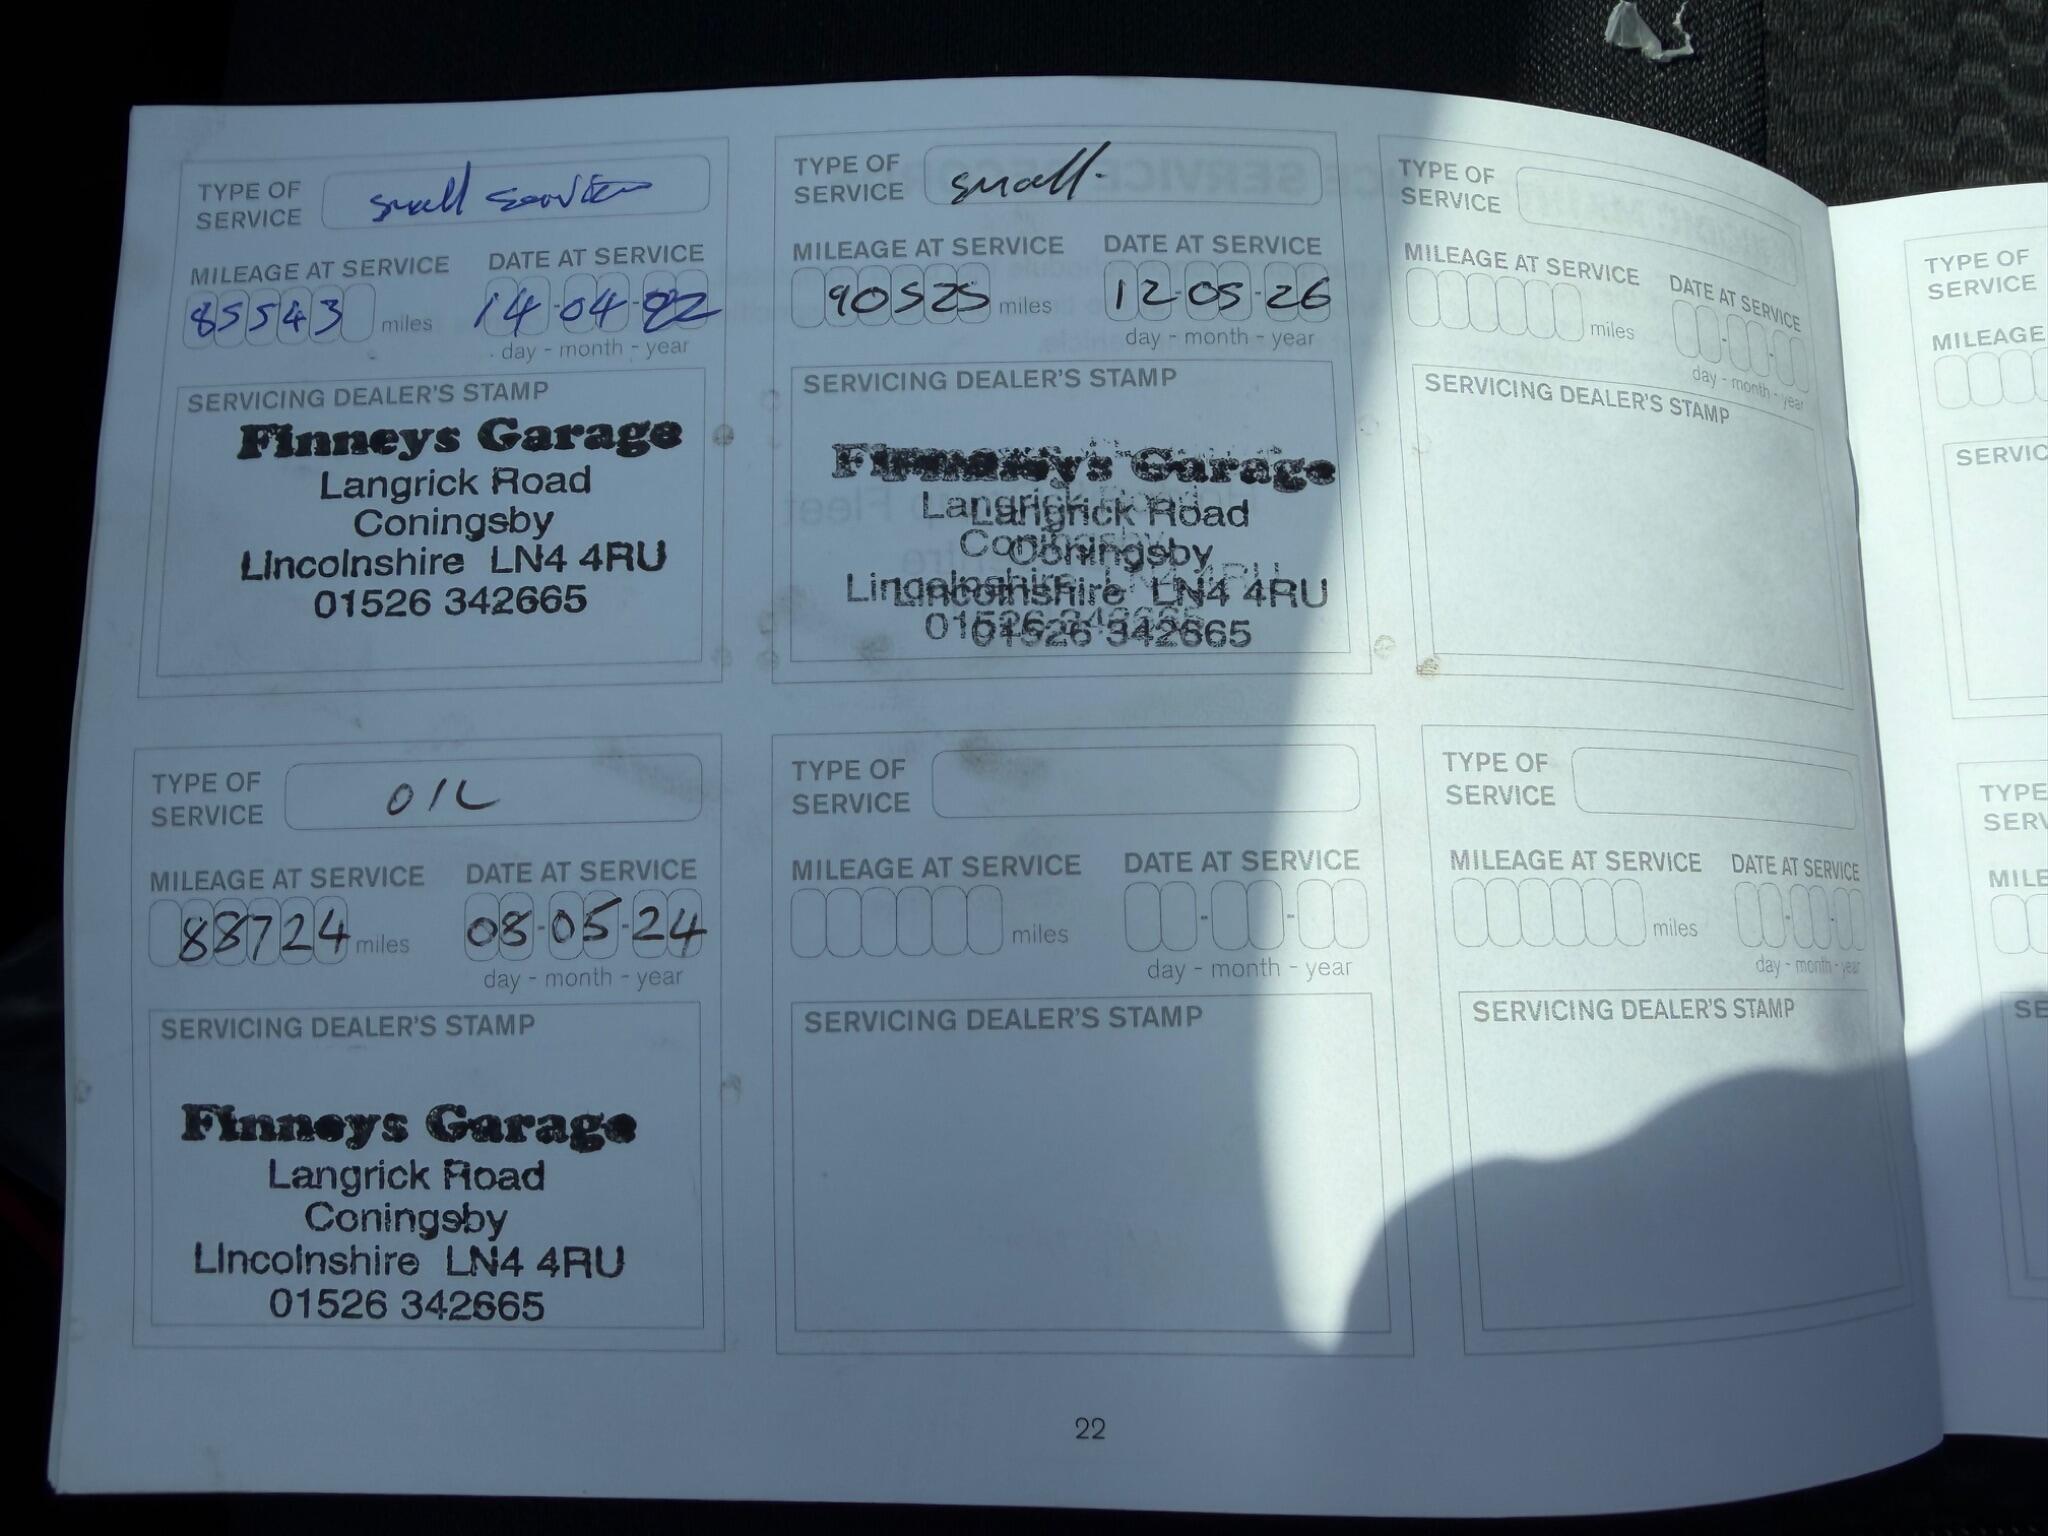 TYPE OF
SERVICE small service
MILEAGE AT SERVICE DATE AT SERVICE
85543 miles 14-04-22
day - month - year
SERVICING DEALER'S STAMP
Finneys Garage
Langrick Road
Coningsby
Lincolnshire LN4 4RU
01526 342665
TYPE OF
SERVICE small-
MILEAGE AT SERVICE DATE AT SERVICE
90525 miles 12-05-26
day - month - year
SERVICING DEALER'S STAMP
Finneys Garage
Langrick Road
Coningsby
Lincolnshire LN4 4RU
01526 342665
TYPE OF
SERVICE
MILEAGE AT SERVICE DATE AT SERVICE
miles
day - month - year
SERVICING DEALER'S STAMP
TYPE OF
SERVICE OIL
MILEAGE AT SERVICE DATE AT SERVICE
88724 miles 08-05-24
day - month - year
SERVICING DEALER'S STAMP
Finneys Garage
Langrick Road
Coningsby
Lincolnshire LN4 4RU
01526 342665
TYPE OF
SERVICE
MILEAGE AT SERVICE DATE AT SERVICE
miles
day - month - year
SERVICING DEALER'S STAMP
TYPE OF
SERVICE
MILEAGE AT SERVICE DATE AT SERVICE
miles
day - month - year
SERVICING DEALER'S STAMP
22
TYPE OF
SERVICE
MILEAGE
SERVIC
TYPE
SERV
MILE
SE